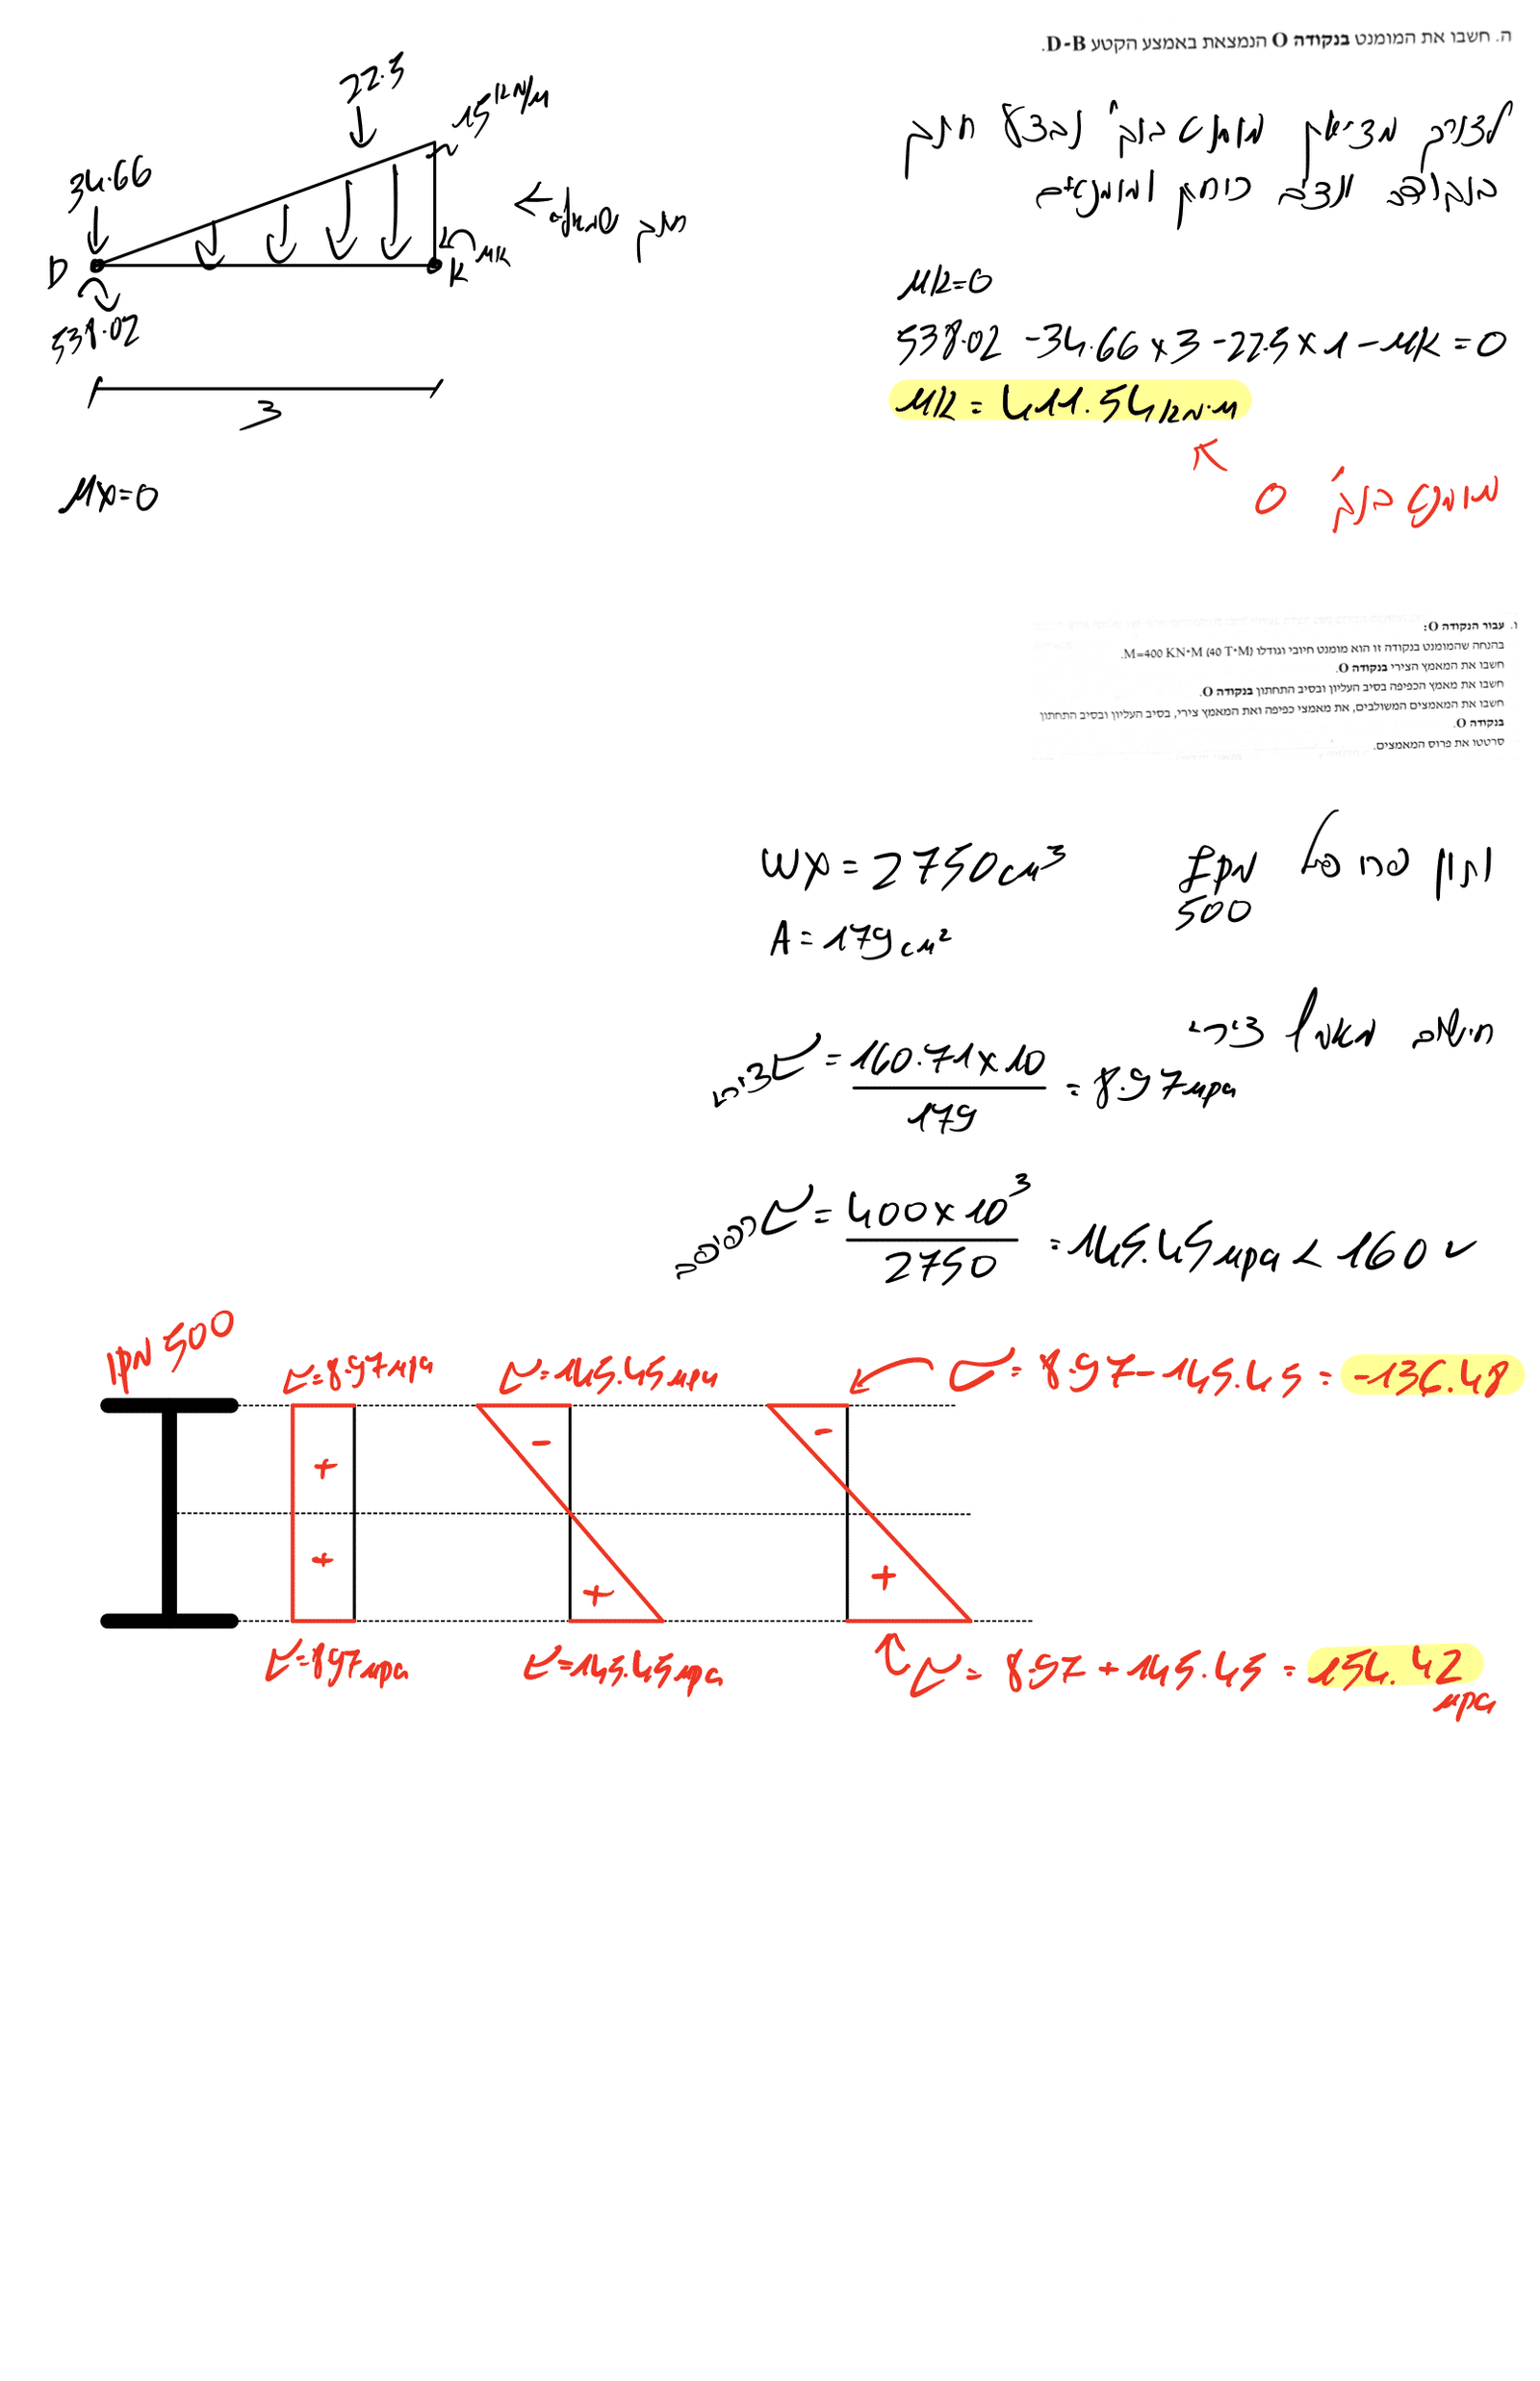 ה. חשבו את המומנט בנקודה O הנמצאת באמצע הקטע D-B.
22.5
15 kN/M
34.66
D
K
MK
חתך שמאלה
538.02
3
MX=0
לצורך מציאת מומנט בנק' נבצע חתך
בנקודה
כוחות ומומנטים
MK=0
538.02 -34.66x3 -22.5x1 -MK = 0
MK = 411.54 kN·M
מומנט בנק' O
ו. עבור הנקודה O:
בהנחה שהמומנט בנקודה זו הוא מומנט חיובי וגודלו M=400 KN*M (40 T*M).
חשבו את המאמץ הצירי בנקודה O.
חשבו את מאמץ הכפיפה בסיב העליון ובסיב התחתון בנקודה O.
חשבו את המאמצים המשולבים, את מאמצי כפיפה ואת המאמץ צירי, בסיב העליון ובסיב התחתון
בנקודה O.
סרטטו את פרוס המאמצים.
נתון פרופיל IPN 500
WX = 2750 cm³
A = 179 cm²
חישוב מאמץ צירי
σ צירי = 160.71x10 / 179 = 8.97 MPa
σ כפיפה = 400x10³ / 2750 = 145.45 MPa < 160 ✓
IPN 500
σ=8.97 MPa
σ=145.45 MPa
σ= 8.97-145.45 = -136.48
-
-
+
+
+
+
σ=8.97 MPa
σ=145.45 MPa
σ= 8.97 + 145.45 = 154.42 MPa